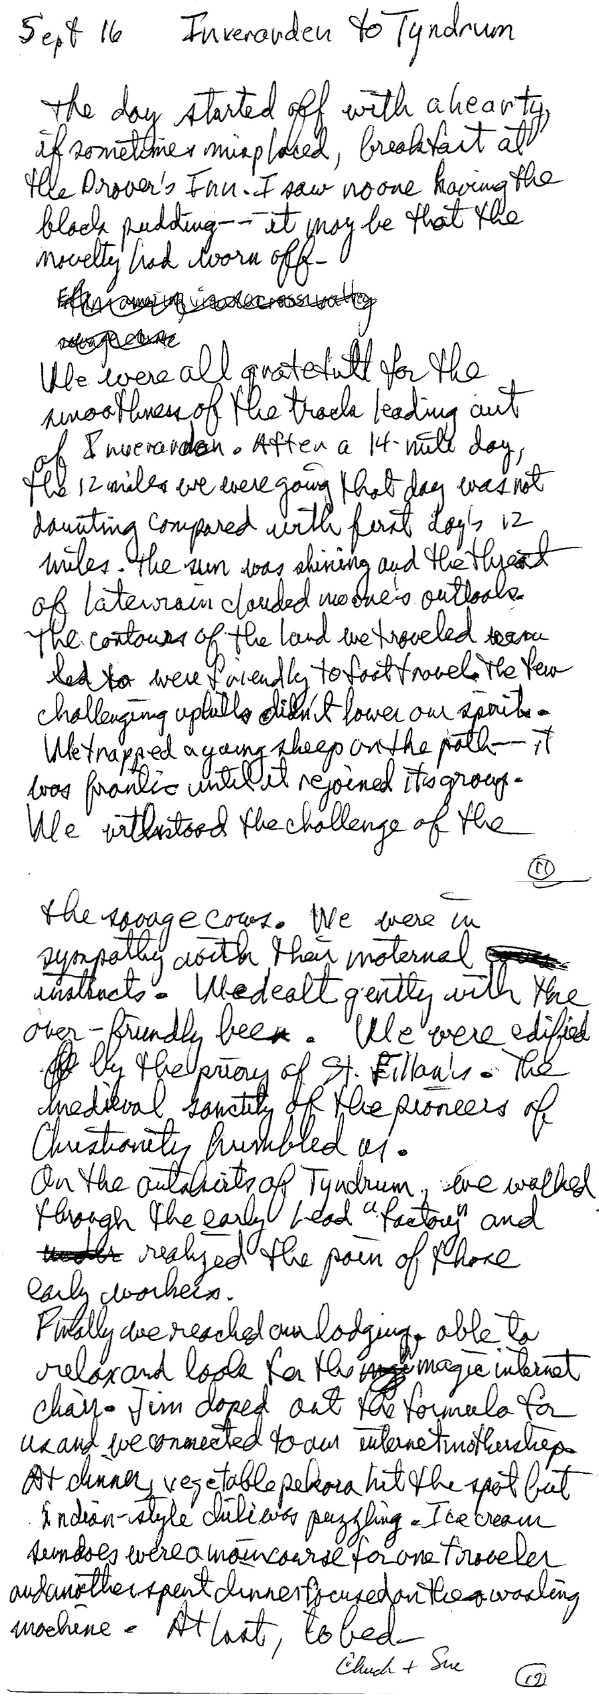 Sept 16 Inverarden to Tyndrum
The day started off with a hearty,
if sometimes misplaced, breakfast at
the Drover's Inn. I saw no one having the
black pudding -- it may be that the
novelty had worn off-
We were all gratefull for the
smoothness of the track leading out
of Inverarden. After a 14-mile day,
the 12 miles we were going that day was not
daunting compared with first day's 12
miles. The sun was shining and the threat
of later rain clouded no one's outlook.
The contours of the land we traveled
led to were friendly to fast travel. The few
challenging uphills didn't lower our spirits.
We trapped a young sheep on the path - it
was frantic until it rejoined its group.
We withstood the challenge of the
11
the savage cows. We were in
sympathy with their maternal
instincts. We dealt gently with the
over-friendly bee. We were edified
by the priory of St. Fillan's. The
medieval sanctity of the pioneers of
Christianity humbled us.
On the outskirts of Tyndrum, we walked
through the early lead "factory" and
realized the pain of those
early workers.
Finally we reached our lodging, able to
relax and look for the magic internet
chair. Jim doped out the formula for
us and we connected to our internet mothership.
At dinner, vegetable pekora hit the spot but
Indian-style chili was puzzling. Ice cream
sundaes were a main course for one traveler
and another spent dinner focused on the washing
machine. At last, to bed-
Chuck + Sue
12